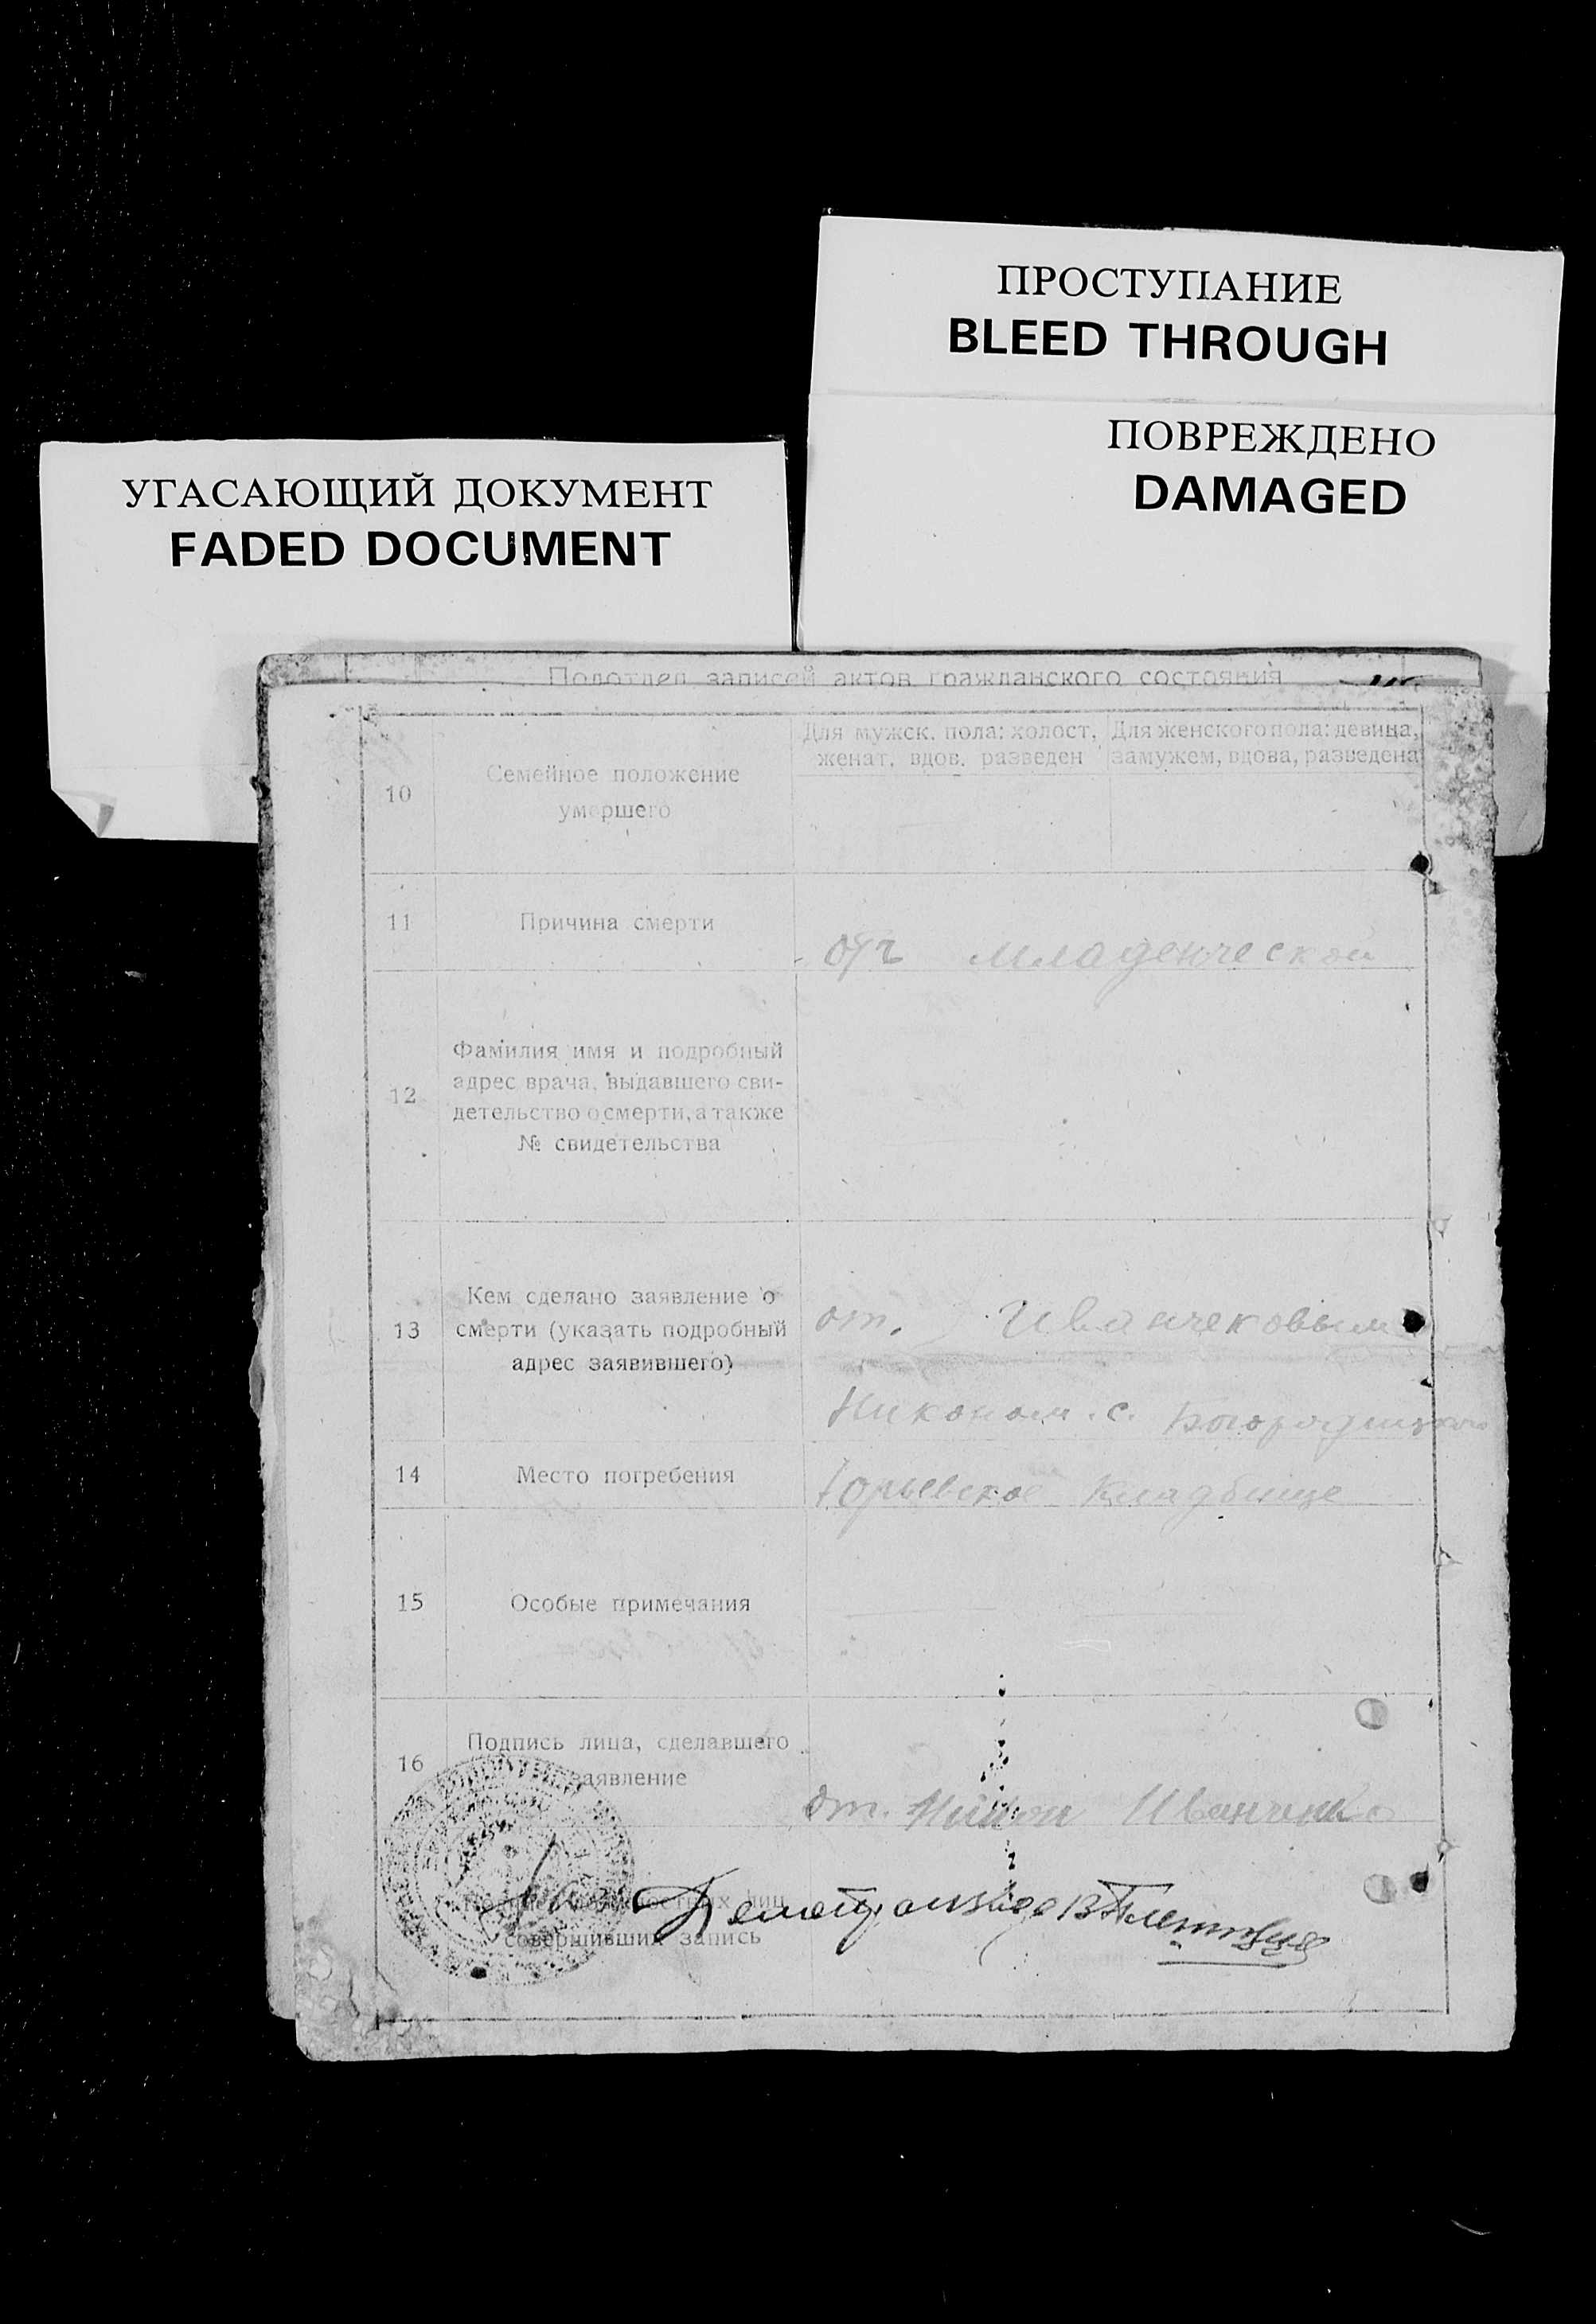 ПРОСТУПАНИЕ
BLEED THROUGH
ПОВРЕЖДЕНО
DAMAGED
УГАСАЮЩИЙ ДОКУМЕНТ
FADED DOCUMENT
Подотдел записей актов гражданского состояния
10
Семейное положение
умершего
Для мужск. пола: холост,
женат, вдов, разведен
Для женского пола: девица,
замужем, вдова, разведена
11
Причина смерти
от младенческой
12
Фамилия имя и подробный
адрес врача, выдавшего сви-
детельство о смерти, а также
№ свидетельства
13
Кем сделано заявление о
смерти (указать подробный
адрес заявившего)
от.
Никоном с.
14
Место погребения
Юрьевское кладбище
15
Особые примечания
16
Подпись лица, сделавшего
заявление
от. Никон Иванченко
совершивших запись